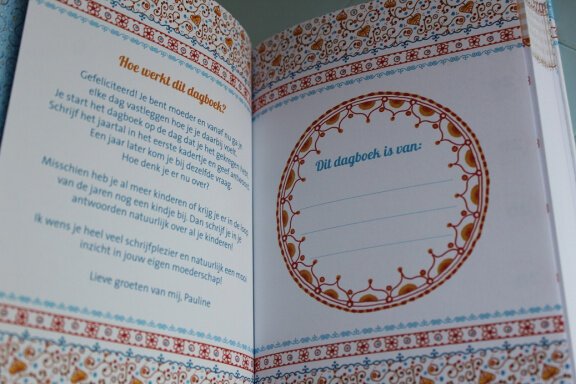 Hoe werkt dit dagboek?
Gefeliciteerd! Je bent moeder en vanaf nu ga je
elke dag vastleggen hoe je je daarbij voelt.
Je start het dagboek op de dag dat je het gekregen hebt.
Schrijf het jaartal in het eerste kadertje en geef antwoord.
Een jaar later kom je bij dezelfde vraag.
Hoe denk je er nu over?
Misschien heb je al meer kinderen of krijg je er in de loop
van de jaren nog een kindje bij. Dan schrijf je in je
antwoorden natuurlijk over al je kinderen!
Ik wens je heel veel schrijfplezier en natuurlijk een mooi
inzicht in jouw eigen moederschap!
Lieve groeten van mij, Pauline
Dit dagboek is van: